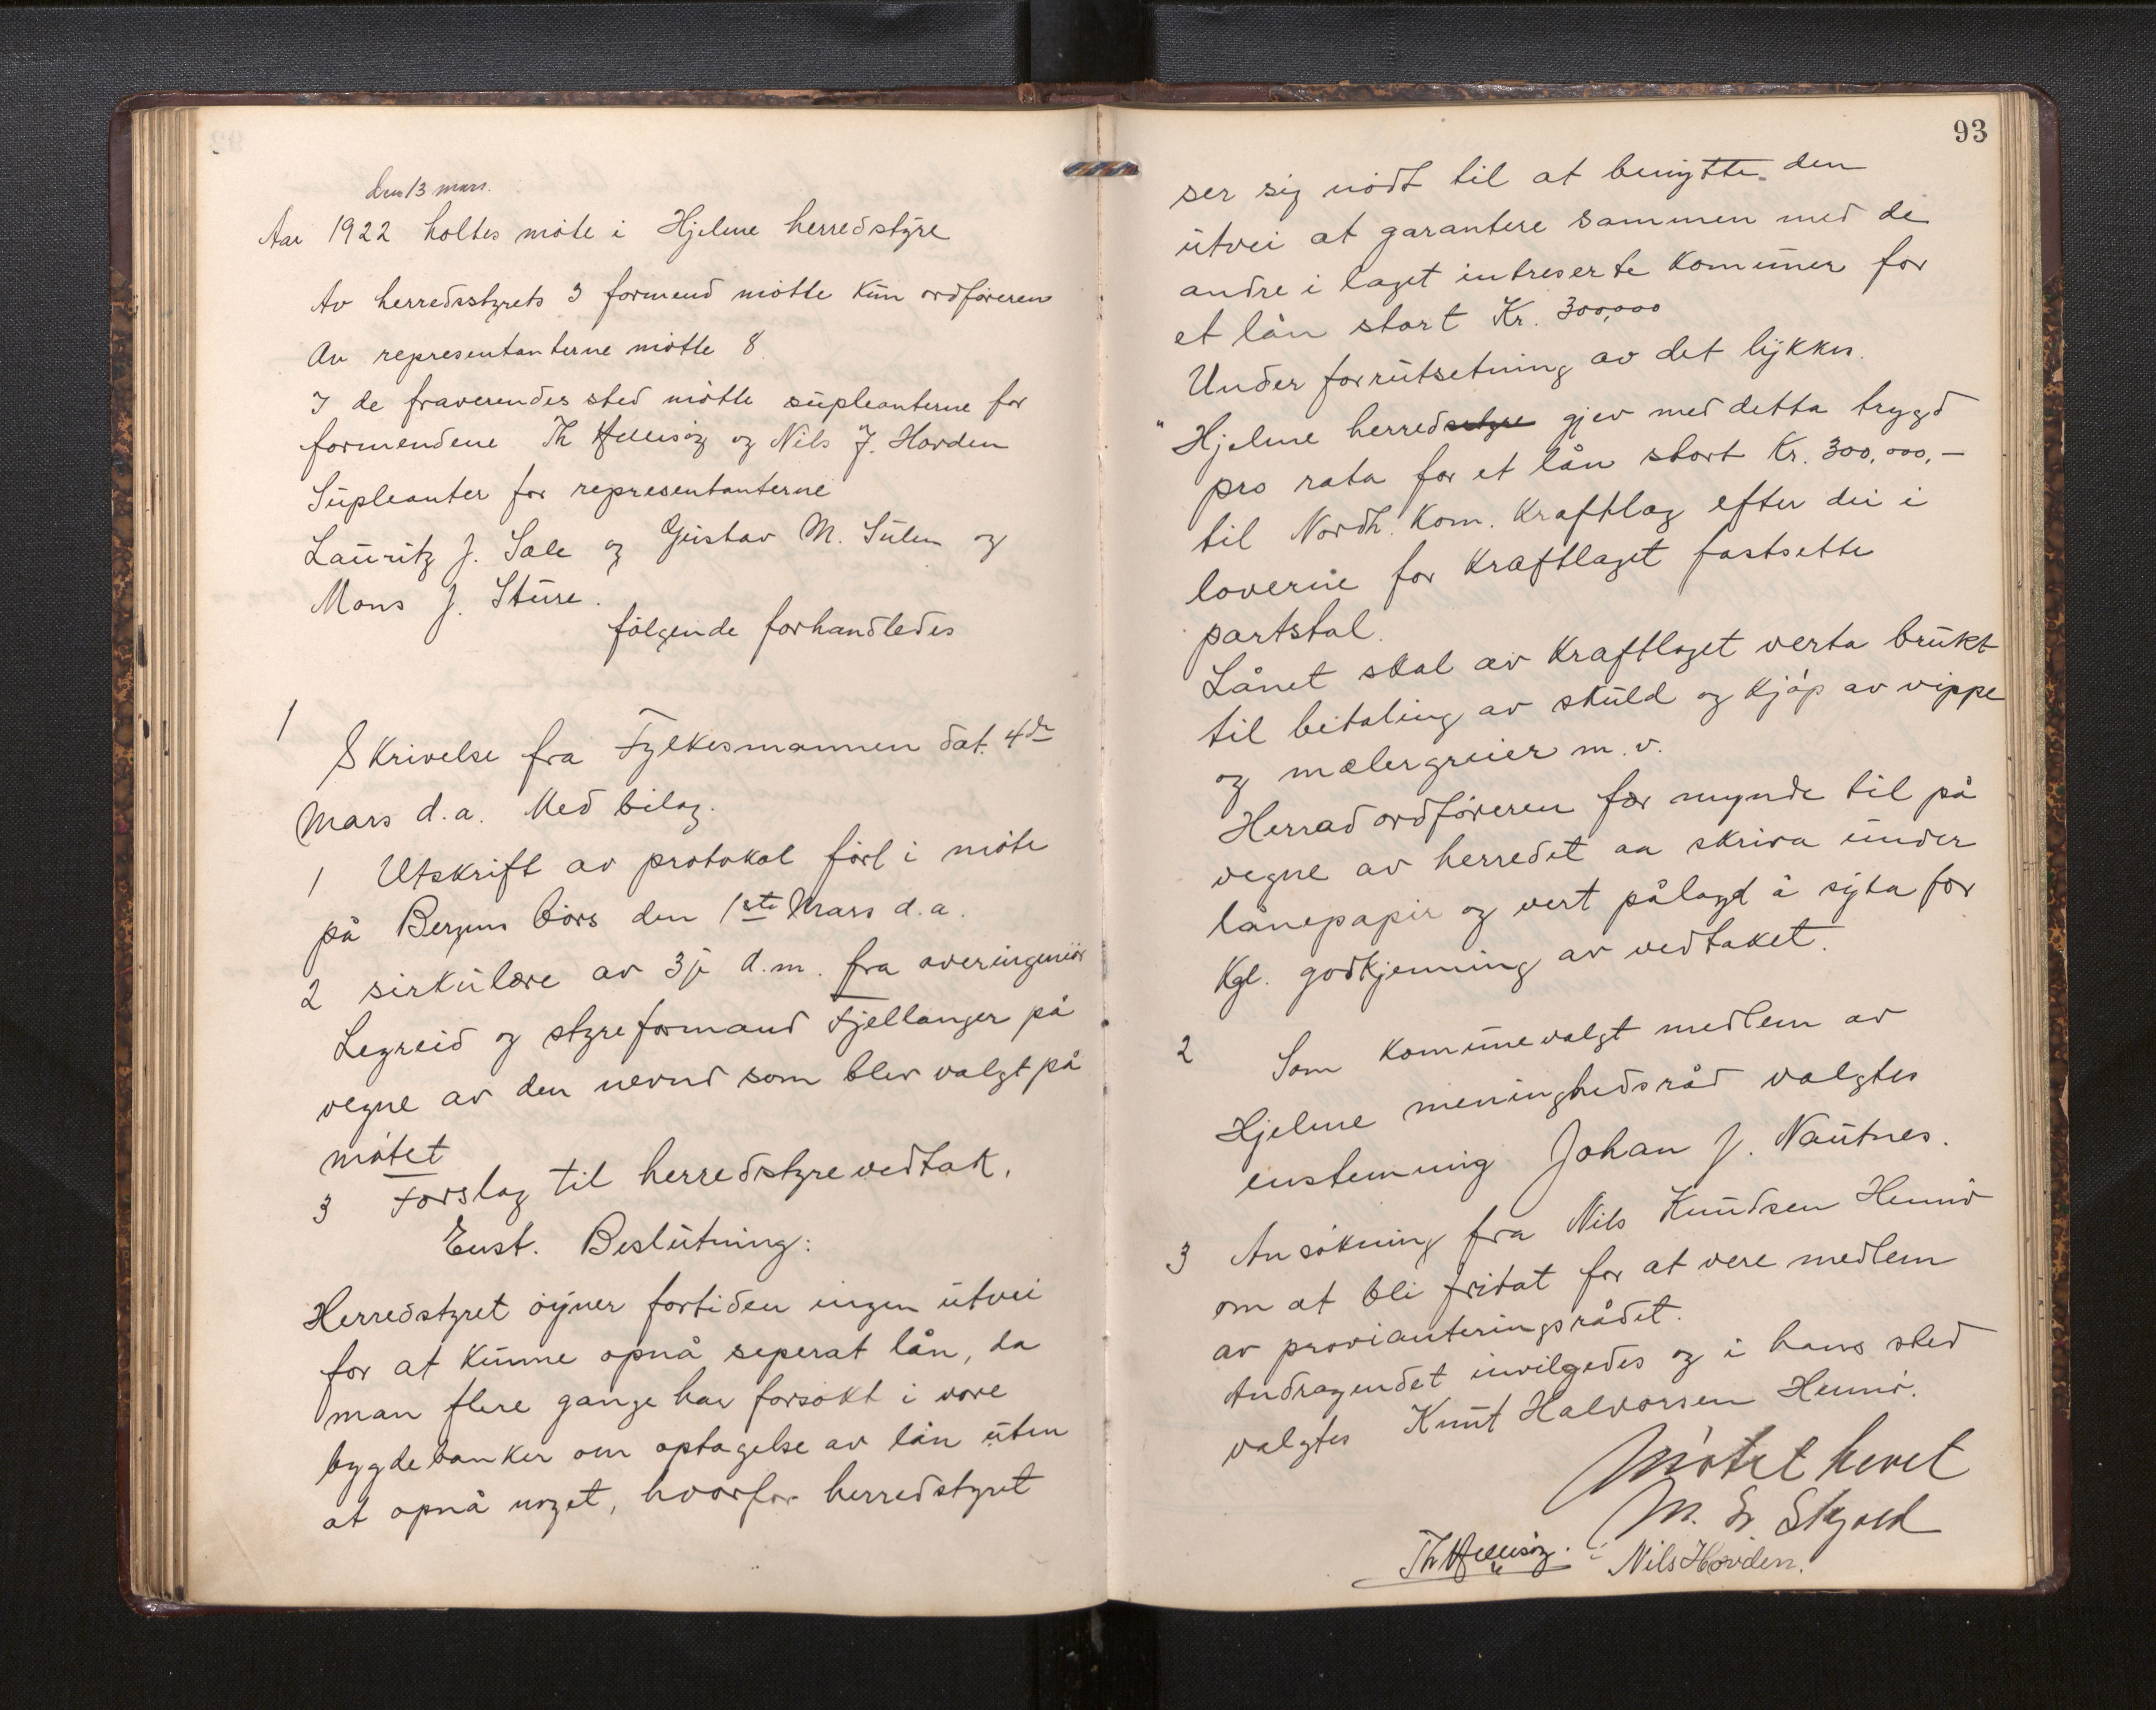 den 13 mars.
Aar 1922 holtes møte i Hjelme herredstyre
Av herredsstyrets 3 formend møtte kun ordføreren
Av representanterne møtte 8.
I de fraverendes sted møtte supleanterne for
formendene Th Hellisøy og Nils J. Horden
Supleanter for representanterne
Lauritz J. Sæle og Gustav M. Sulen og
Mons J. Sture.
følgende forhandledes
1
Skrivelse fra Fylkesmannen dat. 4de
Mars d.a. Med bilag.
1 Utskrift av protokol ført i møte
på Bergens børs den 1ste Mars d.a.
2 sirkulære av 3je d.m. fra overingeniør
Legreid og styreformand Fjellanger på
vegne av den nevnd som blev valgt på
møtet
3 Forslag til herredstyrevedtak.
Enst. Beslutning:
Herredstyret øyner fortiden ingen utvei
for at kunne opnå seperat lån, da
man flere gange har forsøkt i vore
bygdebanker om optagelse av lån uten
at opnå noget, hvorfor herredstyret
93
ser sig nødt til at benytte den
utvei at garantere sammen med de
andre i laget intreserte komuner for
et lån stort Kr. 300,000
Under forrutsetning av det lykkes.
" Hjelme herredsstyre gjev med detta trygd
pro rata for et lån stort Kr. 300,000,-
til Nordh. Kom. Kraftlag efter dei i
loverne for kraftlaget fastsette
partstal.
Lånet skal av Kraftlaget verta brukt
til beitaling av skuld og kjøp av vippe
og mælergreier m.v.
Herrad ordføreren fær mynde til på
vegne av herredet aa skriva under
lånepapir og vert pålagd å syta for
Kgl. godkjenning av vedtaket.
2 Som komunevalgt medlem av
Hjelme meninghedsråd valgtes
enstemmig Johan J. Nautnes.
3 Ansøkning fra Nils Knudsen Hennø
om at bli fritat for at vere medlem
av provianteringsrådet.
Andragendet invilgedes og i hans sted
valgtes Knut Halvorsen Hennø.
Møtet hevet
M. Skjold
Th Hellisøy. Nils Horden.